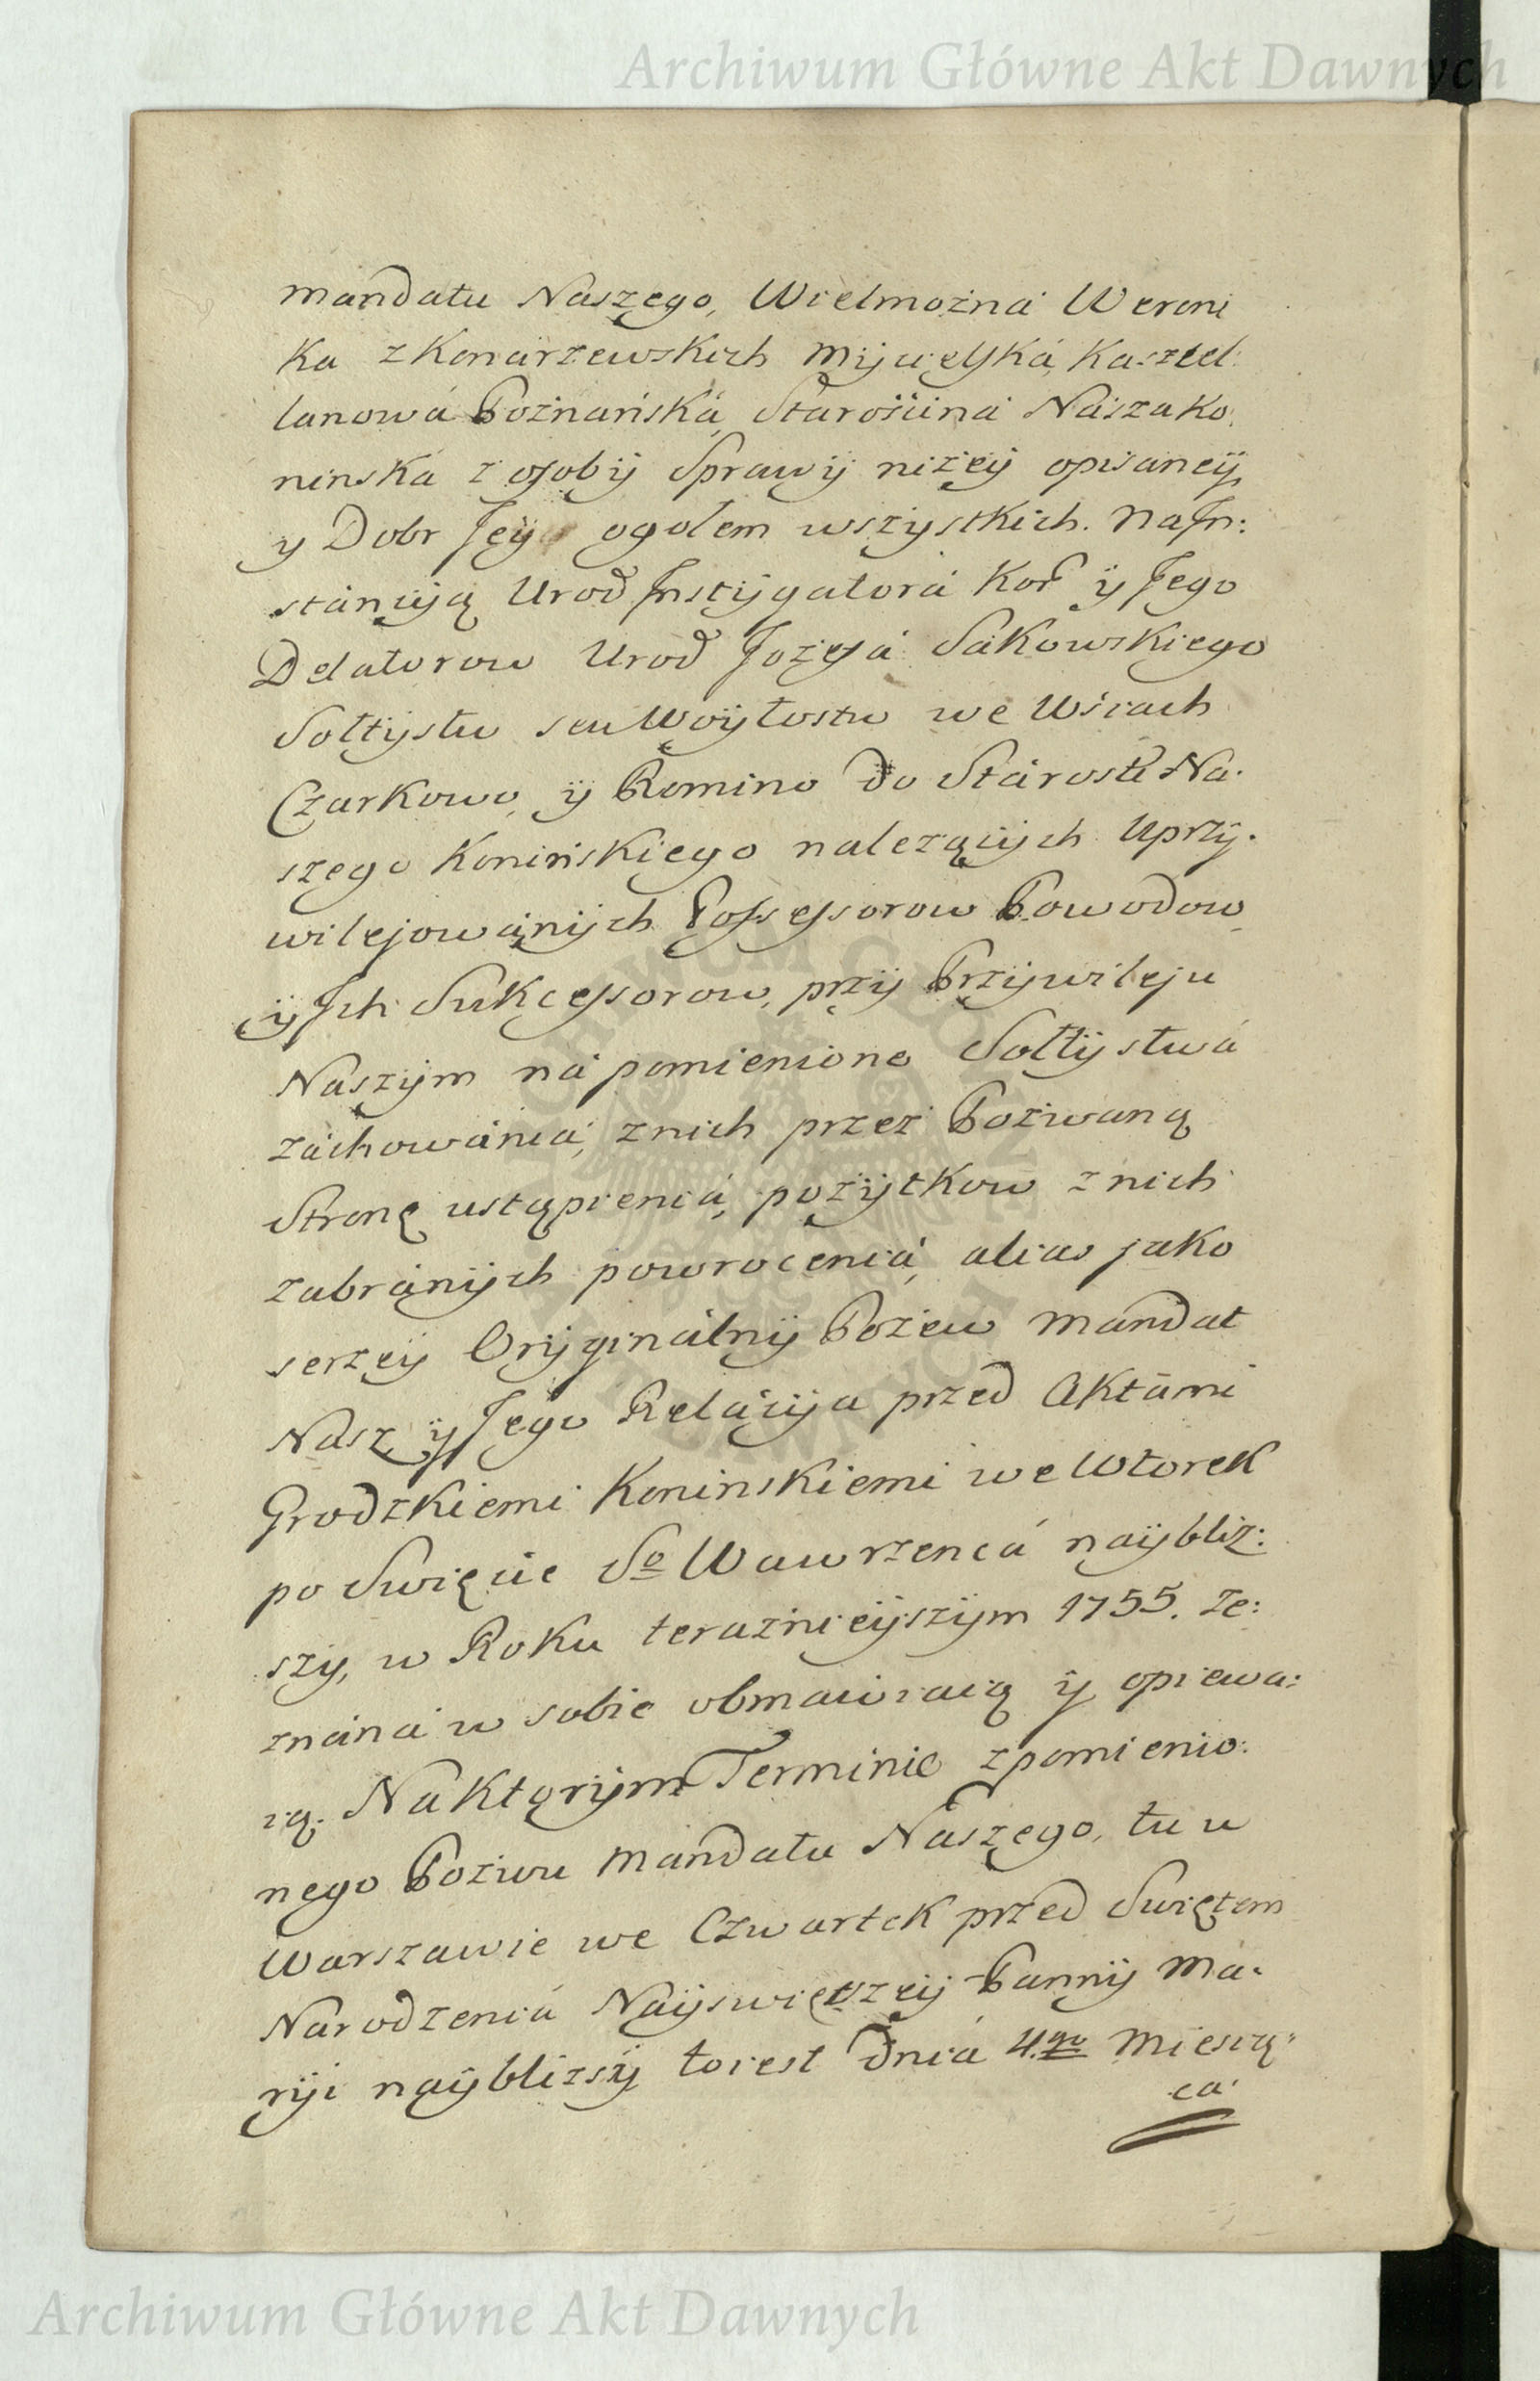 Archiwum Główne Akt Dawnych
mandatu Naszego, Wielmożna Weroni
ka z Konarzewskich Mijcięlská, Kasztel:
lanowá Poznańská, Starościna Naszako,
ninská z osoby Sprawÿ niżeÿ opisaneÿ,
y Dobr Jeÿ ogolem wszystkich. Na Jn:
stáncÿą Urod Jnstÿgatorá Kor ÿ Jego
Delatorow Urod Jozefá Sakowskiego
Sołtÿstw seu Woÿtostw we Wsiach
Czarkowo, ÿ Romino do Stárostw Na:
szego Konińskiego należącÿch Uprzÿ:
wilejowánÿch Possessorow Powodow,
ÿ Jch Sukcessorow, przÿ Przÿwileju
Naszÿm ná pomienione Sołtÿstwá
záchowániá, z nich przez Pozwaną
Stronę ustąpieniá, pożÿtkow z nich
zabránÿch powroceniá, alias jako
serzeÿ Orÿginálnÿ Pozew mandat
Nasz ÿ Jego Relácÿja przed Aktámi
Grodzkiemi Koninskiemi we Wtorek
po Swięcie So Wawrzencá naÿbliż:
szÿ, w Roku teraznieÿszÿm 1755. Ze:
znána w sobie obmawiaią ÿ opiewa:
ią. Na Ktorÿm Terminie z pomienio:
nego Pozwu Mandatu Naszego, tu w
Warszawie we Czwartek przed Swiętem
Narodzeniá Naÿswiętszeÿ Pannÿ Ma:
rÿi naÿbliższÿ to iest dniá 4.go Miesią:
ca
Archiwum Główne Akt Dawnych